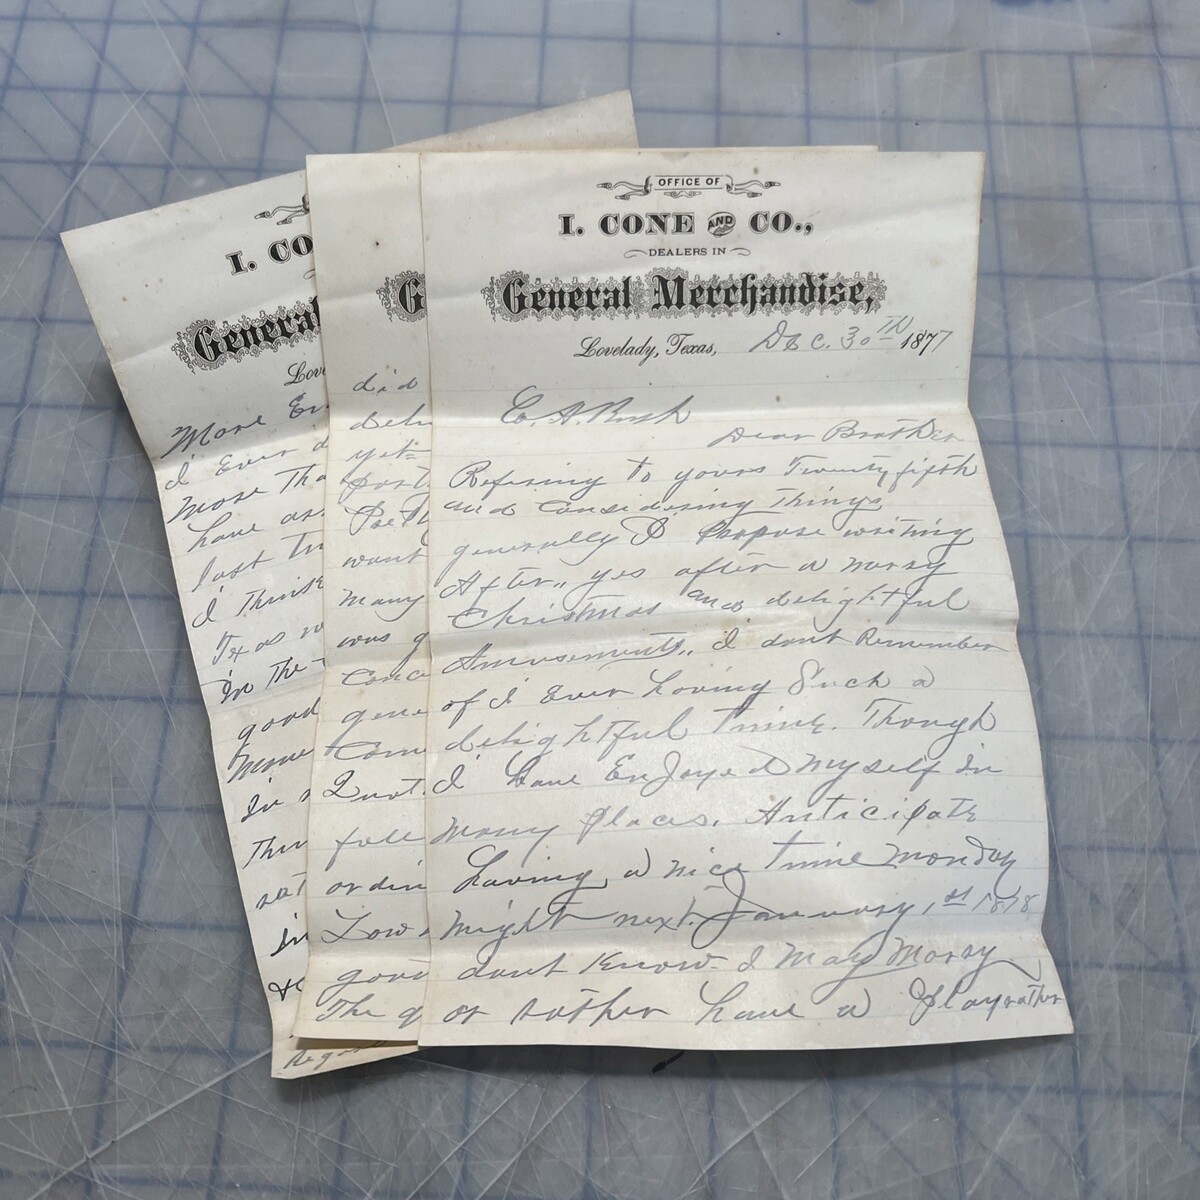 OFFICE OF
I. CONE AND CO.,
DEALERS IN
General Merchandise,
Lovelady, Texas, Dec. 30TH 1877
E. A. Rush
Dear Brother
Refering to yours Twenty fifth
and Considering Things
generally I Propose writing
After,, yes after a merry
Christmas and delightful
Amusements,, I dont Remember
of I Ever having Such a
delightful time. Though
I have Enjoyed Myself in
Many Places. Anticipate
having a nice time Monday
night next. January 1st 1878
dont Know I May Marry
or rather have a Play rather
I. CO
General
Love
More
I Ever d
More Tha
have as
last
I Think
Texas
In The
good
More
In
G
did
yet
want
many
was g
gene
Com
2 not
full
ordin
Low
good
The g